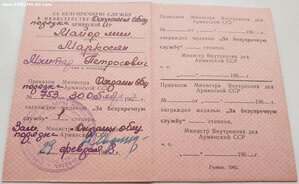 ЗА БЕЗУПРЕЧНУЮ СЛУЖБУ
В МИНИСТЕРСТВЕ Охраны Общ
порядка Армянской ССР
Майор мил.
Маркосян
Петрович
Приказом Министра Охраны общ
порядка Армянской ССР
№ 953 30 Октября 196
награжден медалью „За безупречную
службу" I степени
Охраны общ.
порядка Армянской ССР
29 февраля
Приказом Министра Внутренних дел
Армянской ССР
№ 196 г.
награжден медалью „За безупречную
службу" степени
Министр Внутренних дел
Армянской ССР
196 г.
Приказом Министра Внутренних дел
Армянской ССР
№ 196 г.
награжден медалью „За безупречную
службу" степени
Министр Внутренних дел
Армянской ССР
196 г.
Гознак. 1962.